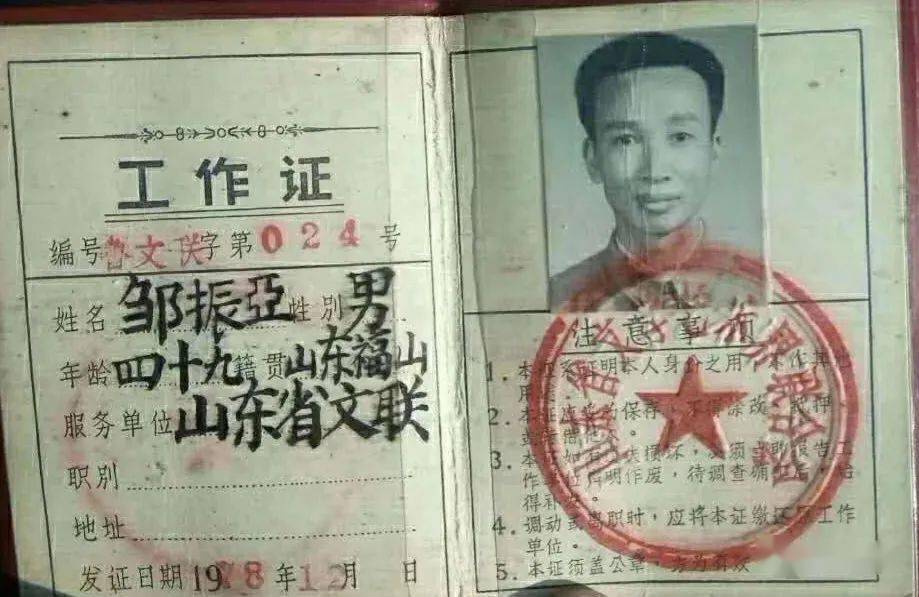 工作证
编号鲁文联字第024号
姓名 邹振亞 性别 男
年龄 四十九 籍贯 山东福山
服务单位 山东省文联
职别
地址
发证日期 1978年12月 日
注意事项
1. 本证系证明本人身份之用,不作其他
用
2. 本证应 保存,不得涂改、抵押
或 借他
3. 本证如有 失损坏,必须 报告工
作单位声明作废,待调查 后,
得补
4. 调动或离职时,应将本证缴还原工作
单位。
5. 本证须盖公章,方为有效
山东省文 术界联合会